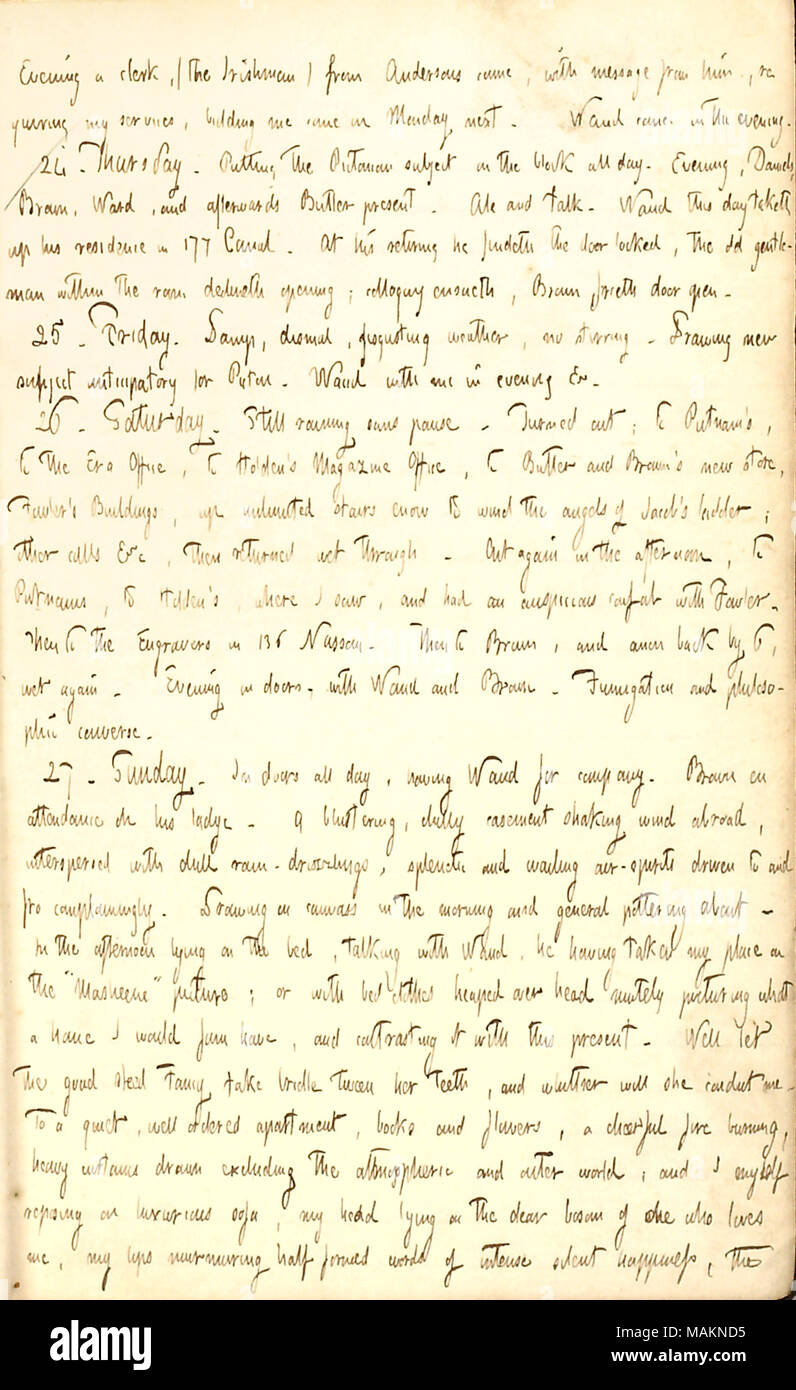 Evening a clerk, (the Irishman) from Andersons came, with message from him, re
quiring my services, bidding me come on Monday next. Waud came in the evening.
24. Thursday. Putting the Pictorian subject on the block all day. Evening, Damoreau,
Brown, Ward, and afterwards Butler present. Ale and talk. Waud this day taketh
up his residence in 177 Canal. At his retiring he findeth the door locked, the old gentle-
man within the room declineth opening; colloquy ensueth, Brown forceth door open.
25. Friday. Damp, dismal, disgusting weather, no stirring. Drawing new
subject anticipatory for Pictn. Waud with me in evening &c.
26. Saturday. Still raining sans pause. Turned out; to Putnam's,
to the Era Office, to Holden's Magazine Office, to Butler and Brown's new store,
Fowler's Buildings, up unlimited stairs enow to wind the angels of Jacob's ladder;
other calls &c, then returned wet through. Out again in the afternoon, to
Putnams, to Holden's, where I saw, and had an auspicious confab with Fowler.
Then to the Engravers in 136 Nassau. Then to Browns, and anon back by 6,
wet again. Evening in doors, with Waud and Brown. Fumigation and philoso-
phic converse.
27. Sunday. In doors all day, having Waud for company. Brown in
attendance on his ladye. A blustering, chilly casement shaking wind abroad,
interspersed with dull rain-drizzlings, splenetic and wailing air-spirits driven to and
fro complainingly. Drawing on canvass in the morning and general pottering about.
In the afternoon lying on the bed, talking with Waud, he having taken my place on
the "Masheene" picture; or with bed clothes heaped over head mutely picturing what
a home I would fain have, and contrasting it with this present. Well let
the good steed Fancy take bridle tween her teeth, and whither will she conduct me.
To a quiet, well ordered apartment, books and flowers, a cheerful fire burning,
heavy curtains drawn excluding the atmospheric and outer world; and I myself
reposing on luxurious sofa, my head lying on the dear bosom of she who loves
me, my lips murmuring half formed words of intense silent happiness, the
alamy
Image ID: MAKND5
www.alamy.com